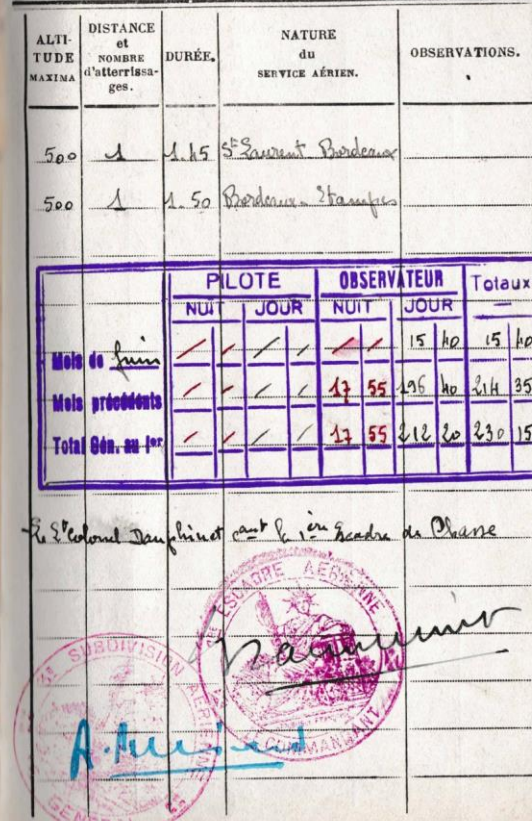 ALTI-TUDE MAXIMA DISTANCE et NOMBRE d'atterrissa-ges. DURÉE. NATURE du SERVICE AÉRIEN. OBSERVATIONS.
500 1 1.45 St Laurent Bordeaux
500 1 1.50 Bordeaux - Etampes
PILOTE OBSERVATEUR Totaux
NUIT JOUR NUIT JOUR
Mois de Juin / / / / / / 15 40 15 40
Mois précédents / / / / 17 55 196 40 214 35
Total Gén. au 1er / / / / 17 55 212 20 230 15
Le Lt Colonel Dauphinet cant la 1ère Escadre de Chasse
ESCADRE AERIENNE
COMMANDANT
SUBDIVISION AERIENNE